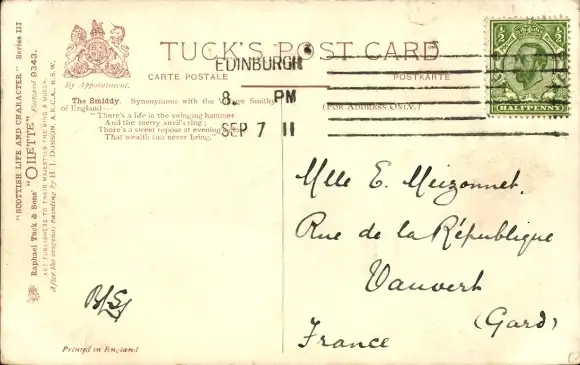 "SCOTTISH LIFE AND CHARACTER" Series III
Raphael Tuck & Sons' "OILETTE" Postcard 9343.
ART PUBLISHERS TO THEIR MAJESTIES THE KING & QUEEN.
After the original painting by H. J. DOBSON, A.R.C.A., R.S.W.
By Appointment.
TUCK'S POST CARD
CARTE POSTALE
POSTKARTE
EDINBURGH
8. PM
SEP 7 11
HALFPENNY
The Smiddy. Synonymous with the Village Smithy
of England—
(FOR ADDRESS ONLY.)
"There's a life in the swinging hammer
And the merry anvil's ring;
There's a sweet repose at evening
That wealth can never bring."
Mlle E. Meizonnet.
Rue de la République
Vauvert
(Gard)
France
B/S/
Printed in England